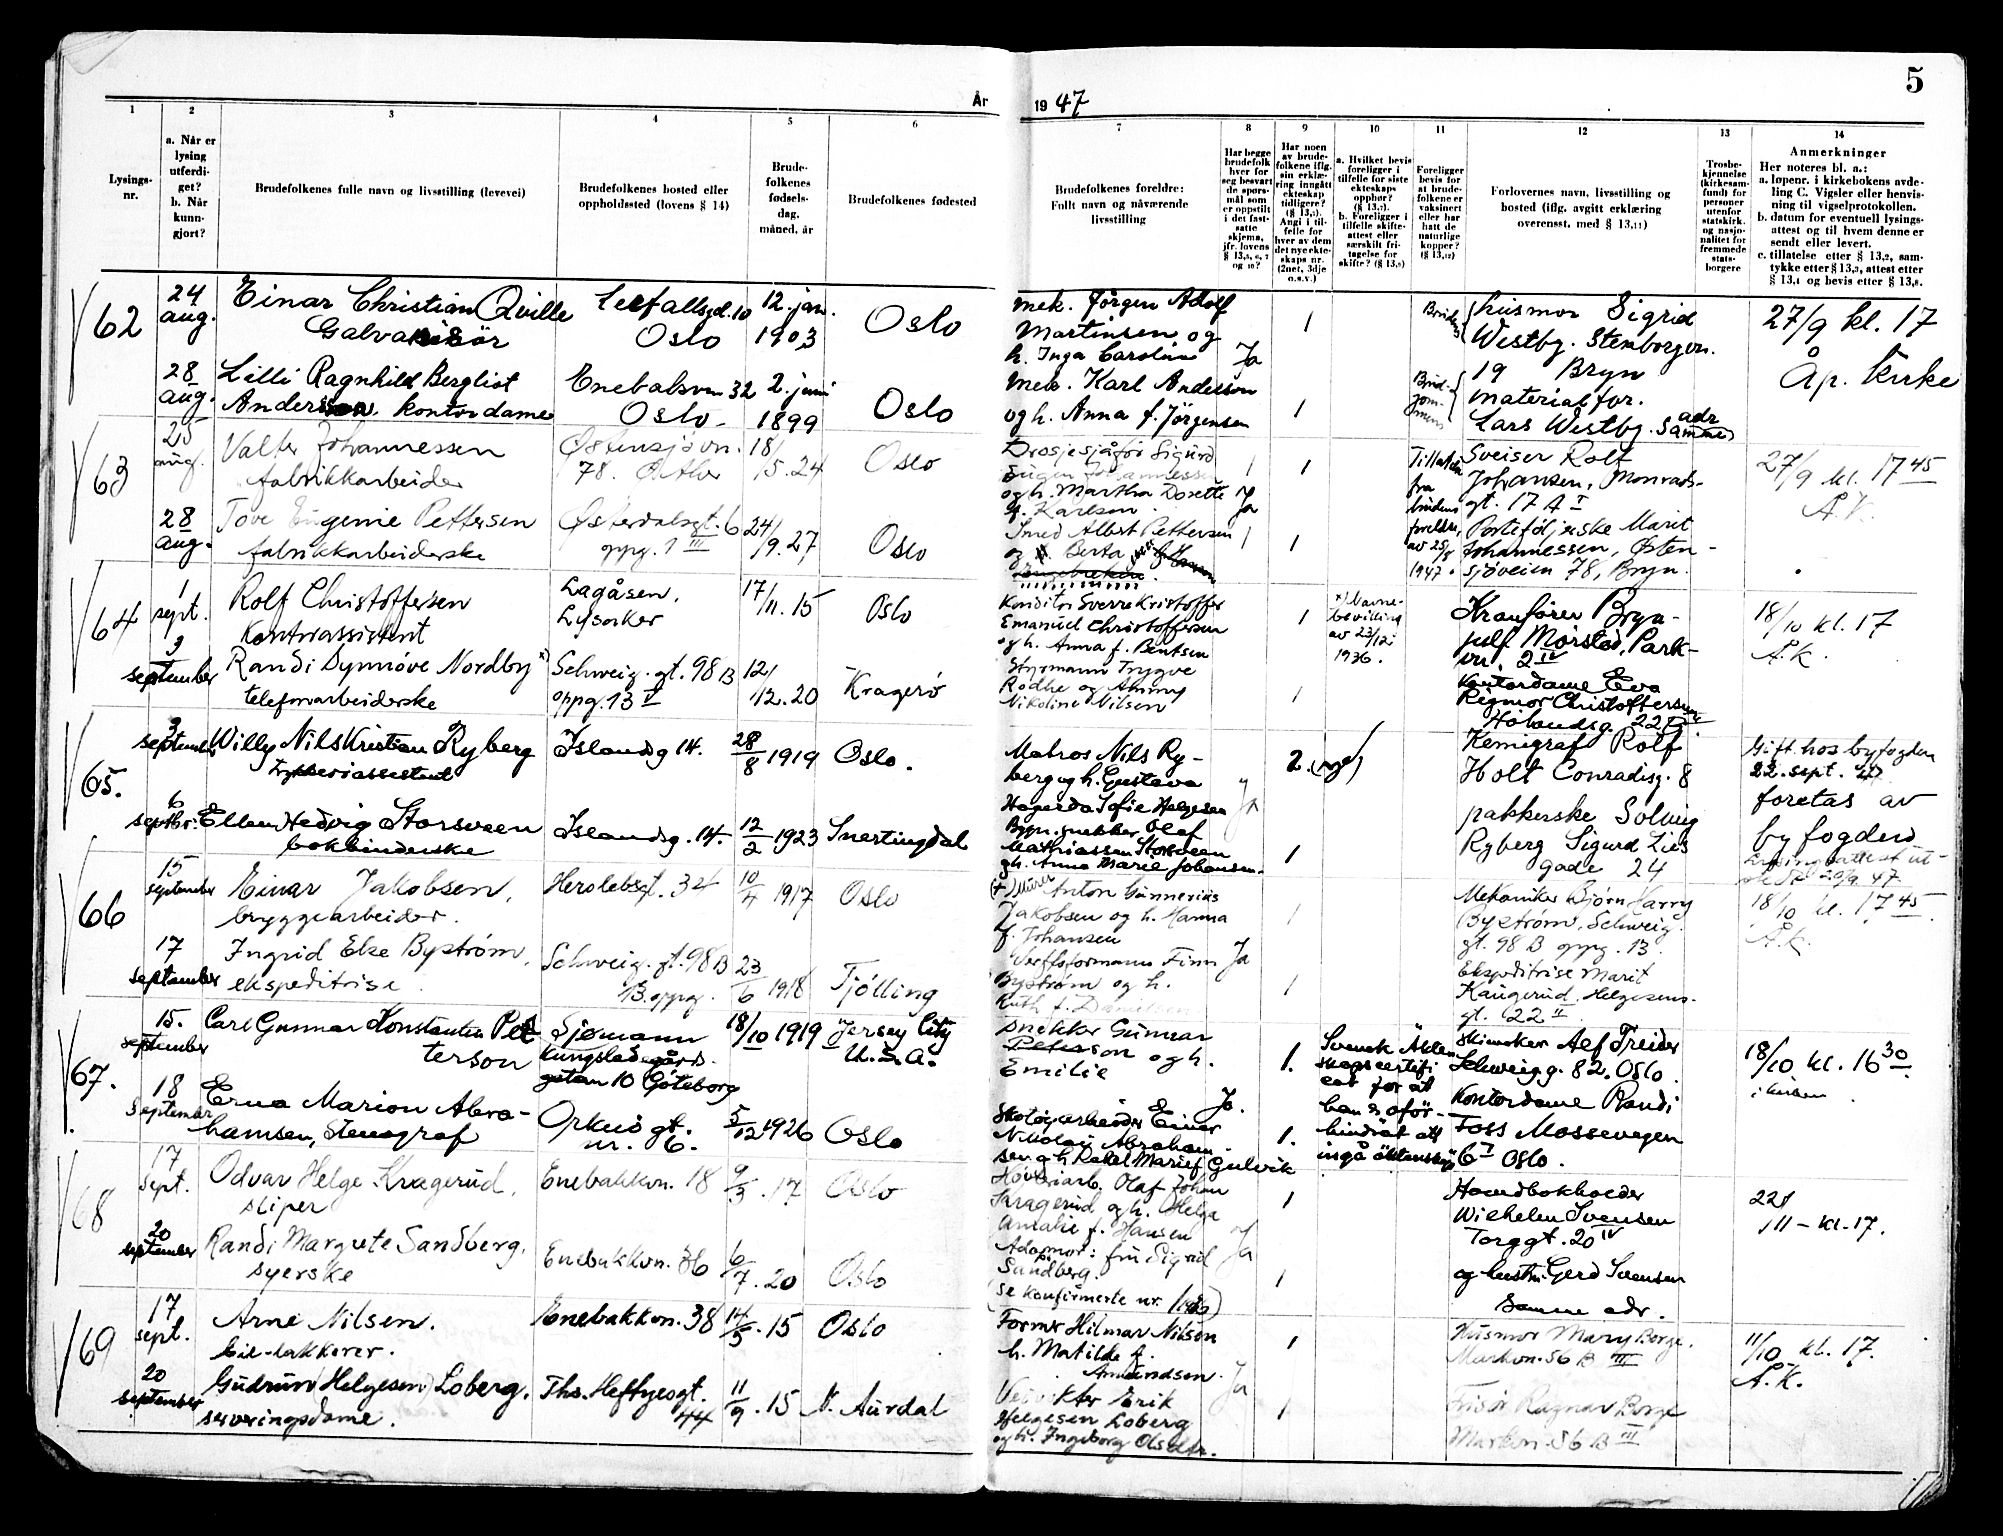 5
År
19 47
1
2
3
4
5
6
7
8
9
10
11
12
13
14
Lysings-
nr.
a. Når er
lysing
utferdi-
get?
b. Når
kunn-
gjort?
Brudefolkenes fulle navn og livsstilling (levevei)
Brudefolkenes bosted eller
oppholdssted (lovens § 14)
Brude-
folkenes
fødsels-
dag,
måned, år
Brudefolkenes fødested
Brudefolkenes foreldre:
Fullt navn og nåværende
livsstilling
Har begge
brudefolk
hver for
seg besvart
de spørs-
mål som
er oppstilt
i det fast-
satte
skjema,
jfr. lovens
§ 13,5, 6, 7
og 10?
Har noen
av brude-
folkene iflg.
sin erklæ-
ring inngått
ekteskap
tidligere?
(§ 13,5).
Angi i til-
felle for
hver av dem
det nye ekte-
skaps nr.
(2net, 3dje
o.s.v.)
a. Hvilket bevis
foreligger i
tilfelle for siste
ekteskaps
opphør?
(§ 13,7).
b. Foreligger i
tilfelle skifte-
attest eller
særskilt fri-
tagelse for
skifte? (§ 13,8)
Foreligger
bevis for
at brude-
folkene er
vaksinert
eller har
hatt de
naturlige
kopper?
(§ 13,12)
Forlovernes navn, livsstilling og
bosted (iflg. avgitt erklæring
overensst. med § 13,11)
Trosbe-
kjennelse
(kirkesam-
funn) for
personer
utenfor
statskirk.
og nasjo-
nalitet for
fremmede
stats-
borgere
Anmerkninger
Her noteres bl. a.:
a. løpenr. i kirkebokens avde-
ling C. Vigsler eller henvis-
ning til vigselprotokollen.
b. datum for eventuell lysings-
attest og til hvem denne er
sendt eller levert.
c. tillatelse etter § 13,2, sam-
tykke etter § 13,3, attest etter
§ 13,4 og bevis etter § 13,8.
62
24
aug.
Einar Christian Qville
Galvanisør
10
Oslo
12. jan.
1903
Oslo
mek. Jörgen Adolf
Martinsen og
h. Inga Caroline
Ja
1
husmor Sigrid
Westby. Stenborgvn.
27/9 kl. 17
Åp. kirke
28
aug.
Lilli Ragnhild Bergliot
Anderson. kontordame
Enebakvn 32
Oslo
2. juni
1899
Oslo
mek. Karl Anderson
og h. Anna f. Jørgensen
1
19 Bryn
materialfor.
Lars Westby. samme adr
63
25
aug.
Valter Johannessen
fabrikkarbeider
Østensjøvn.
78.
18/5. 24
Oslo
Drosjesjåfør Sigurd
Eugen Johannessen
og h. Martha Dosette
f. Karlson
Ja
1
Tillatelse
fra
brudens
foreldre,
av 25/8
1947.
Sveiser Rolf
Johansen, Monrads-
gt. 17 A I
27/9 kl. 17 45
Å.K.
28
aug.
Tove Eugenie Pettersen
fabrikkarbeiderske
Østerdalsgt. 6
oppg. 1 III
24/9. 27
Oslo
Smed Albert Pettersen
og Berta
1
Porteføljerske Marit
Johannessen, Østen-
sjøveien 78, Bryn.
64
1
sept.
Rolf Christoffersen
Kontorassistent
Lagåsen,
Lysaker
17/11. 15
Oslo
Konditor Sverre Kristoffer
Emanuel Christoffersen
og h. Anna f. Bentsen
1
x) Navne-
bevilling
av 23/12
1936.
Kranfører Bryn-
julf Morstad, Park-
vn. 2 IV
18/10 kl. 17
Å.K.
3
september
Randi Synnøve Nordby x)
telefonarbeiderske
Schweig. gt. 98 B
oppg. 13 V
12/12. 20
Kragerø
Styrmann Trygve
Rødhe og Ammy
Nikoline Nilsen
1
Kontordame Eva
Rigmor Christoffersen
Hølandsg. 22
65.
3
september
Willy Nils Kristian Ryberg
Islandsg 14.
28/8 1919
Oslo.
Matros Nils Ry-
berg og h. Gustava
Hagerda Sofie Helgesen
Ja
2.
Kemigraf Rolf
Holt Conradisg. 8
Gift hos byfogden
22. sept. 47
foretas av
byfogden
6
septbr.
Ellen Hedvig Storsveen
bokbinderske
Islandsg. 14.
12/2 1923
Snertingdal
Bygn.snekker Olaf
Mathiassen Storsveen
og h. Anna Marie Johansen.
1
pakkerske Solveig
Ryberg Sigurd Lies
gade 24
Lysingsattest ut-
stedt 20/9 47
66
15
september
Einar Jakobsen,
bryggearbeider.
Herslebsgt. 34
10/4 1917
Oslo
(+) Murer Anton Gunnerius
Jakobsen og h. Hanna
f. Johansen
1
Mekaniker Bjørn Harry
Byström, Schweig.
gt. 98 B oppg. 13.
18/10 kl. 17 45
Å.K.
17
september
Ingrid Else Byström,
ekspeditrise.
Schweig. gt. 98 B
13. oppg.
23/6 1918
Tjølling
Verftsformann Finn
Byström og h.
Ruth f. Danielsen
Ja
1
Ekspeditrise Marit
Kaugerud, Helgesens-
gt. 22 II
67.
15.
september
Carl Gunnar Konstantin Pet
terson
Sjømann
Kungsladugårds
gatan 10 Göteborg
18/10 1919
Jersey City
U.S.A.
Snekker Gunnar
Peterson og h.
Emilie
1.
Svensk Äkten
skapscertifi
cat for at
han är oför-
hindrat att
ingå äktenskap
Alf Treider
Schweigg. 82. Oslo.
18/10 kl. 16 30
18
September
Erna Marion Abra-
hamsen, Stenograf
Orknøgt.
nr. 6.
5/12 1926
Oslo
Skotøyarbeider Einar
Nikolai Abraham-
sen og h Rakel Marie f Gulvik
Ja.
1.
Kontordame Randi
Foss Mossevegen
6 I Oslo.
68
17
sept.
Odvar Helge Kragerud,
sliper
Enebakkvn. 18
9/3. 17
Oslo
Høvleriarb. Olaf Johan
Kragerud og h. Helga
Amalie f. Hansen
Ja
1
Hovedbokholder
Wilhelm Svensen
Torggt. 20 IV
22/11 - kl. 17.
20
september
Randi Margrete Sandberg,
syerske
Enebakkvn. 36
6/7. 20
Oslo
Adopmor: fru Sigrid
Sundberg.
(se konfirmerte nr.
1
og hustru Gerd Svensen
samme adr.
69
17
sept.
Arne Nilsen.
bil-lakkerer.
Enebakkvn. 38
14/5. 15
Oslo
Former Hilmar Nilsen
h. Matilde f.
Amundsen.
Ja
1
Husmor Mary Borge.
Markvn. 56 B III
11/10 kl. 17.
Å.K.
20
september
Gudrun (Helgesen) Loberg.
serveringsdame.
Ths. Heftyesgt.
44
11/9. 15
N. Aurdal
Veivokter Erik
Helgesen Loberg
og h. Ingeborg Olsdtr.
1
Frisør Ragnar Borge
Markvn. 56 B III